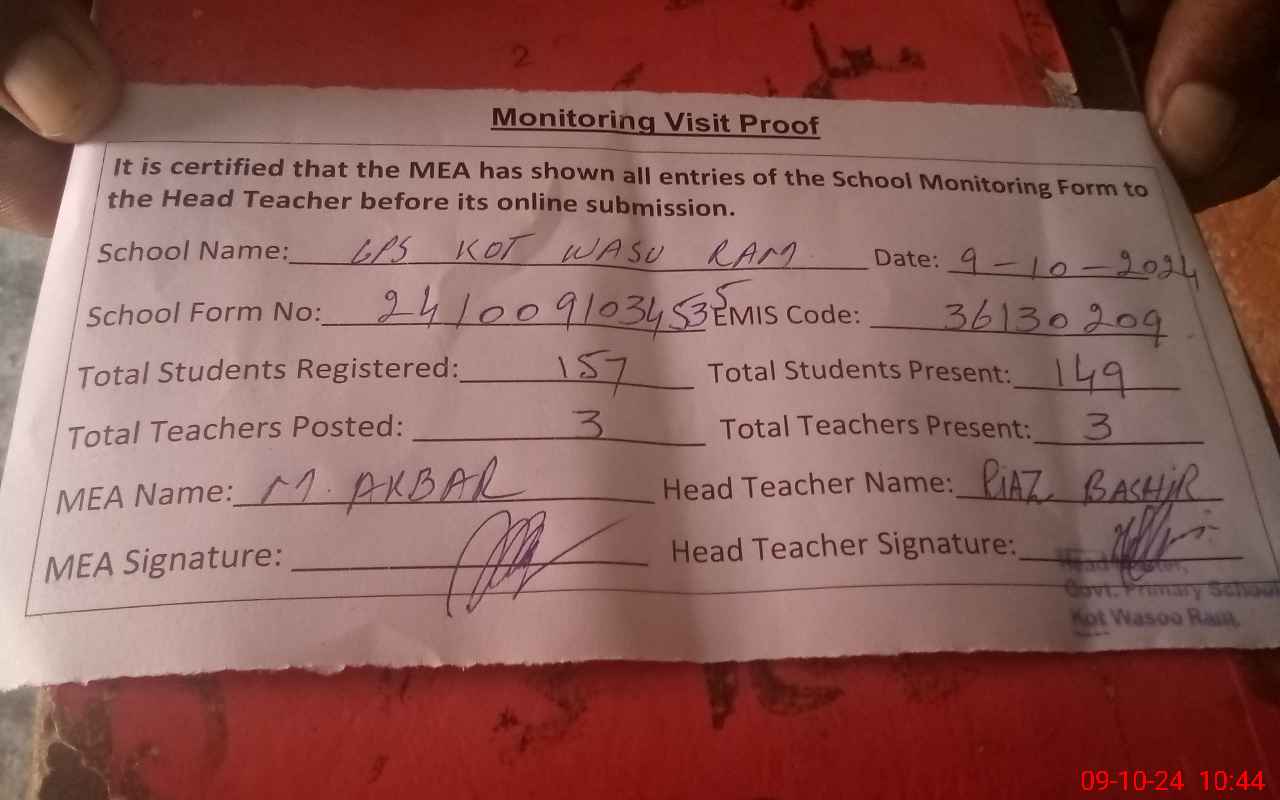 Monitoring Visit Proof
It is certified that the MEA has shown all entries of the School Monitoring Form to
the Head Teacher before its online submission.
School Name: GPS KOT WASU RAM Date: 9-10-2024
School Form No: 2410091034535 EMIS Code: 36130209
Total Students Registered: 157 Total Students Present: 149
Total Teachers Posted: 3 Total Teachers Present: 3
MEA Name: M. AKBAR Head Teacher Name: RIAZ BASHIR
MEA Signature: Head Teacher Signature:
Govt. Primary School
Kot Wasoo Ram,
09-10-24 10:44